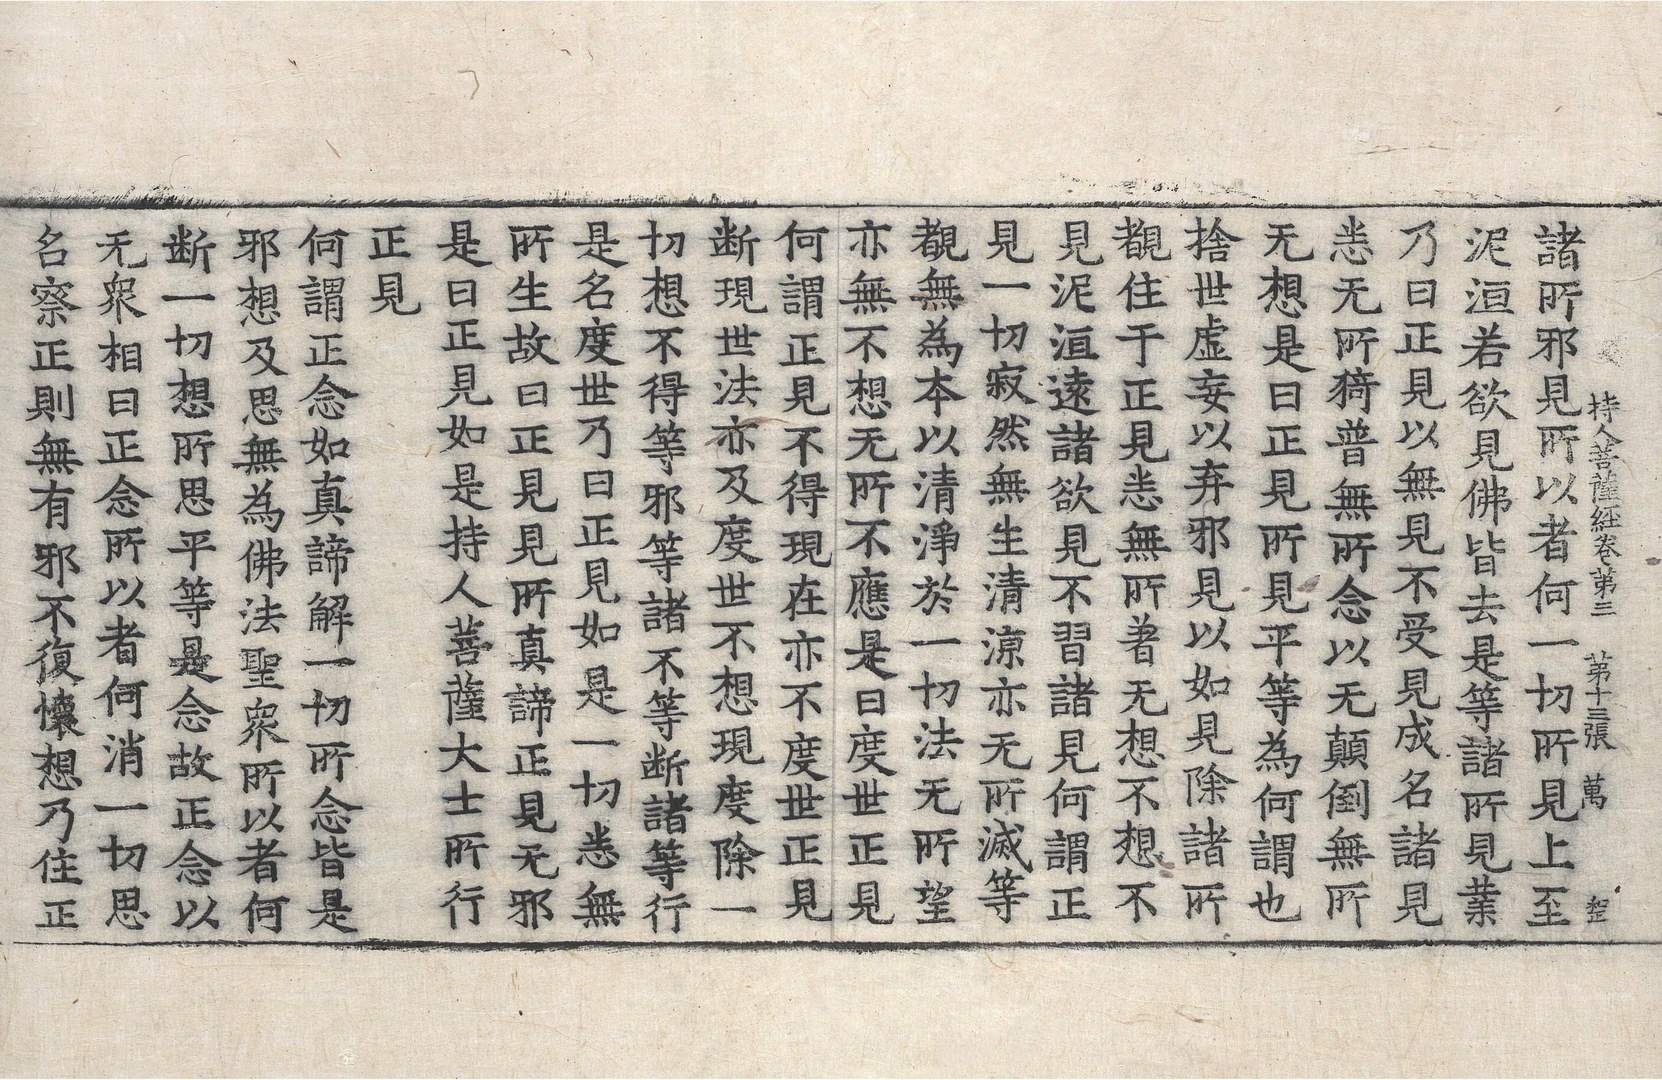 持人菩薩經卷第三　第十三張　萬
諸所邪見所以者何一切所見上至
泥洹若欲見佛皆去是等諸所見業
乃曰正見以無見不受見成名諸見
悉无所猗普無所念以无顛倒無所
无想是曰正見所見平等為何謂也
捨世虛妄以弃邪見以如見除諸所
覩住于正見悉無所著无想不想不
見泥洹遠諸欲見不習諸見何謂正
見一切寂然無生清涼亦无所滅等
覩無為本以清淨於一切法无所望
亦無不想无所不應是曰度世正見
何謂正見不得現在亦不度世正見
断現世法亦及度世不想現度除一
切想不得等邪等諸不等断諸等行
是名度世乃曰正見如是一切悉無
所生故曰正見見所真諦正見无邪
是曰正見如是持人菩薩大士所行
正見
何謂正念如真諦解一切所念皆是
邪想及思無為佛法聖衆所以者何
断一切想所思平等是念故正念以
无衆相曰正念所以者何消一切思
名察正則無有邪不復懷想乃住正